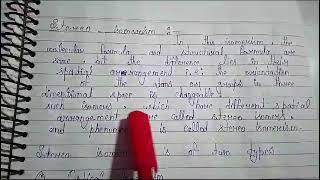 Stereo isomerism :-
In this isomerism, the
molecular formula and structural formula are
same but the difference lies in their
spatial arrangement i.e. the orientation
of the atoms or groups in three
dimentional space is changeable.
such isomers, which have different spatial
arrangement are called stereo isomers
and phenomenon is called stereo isomerism.
Stereo isomerism is of two types